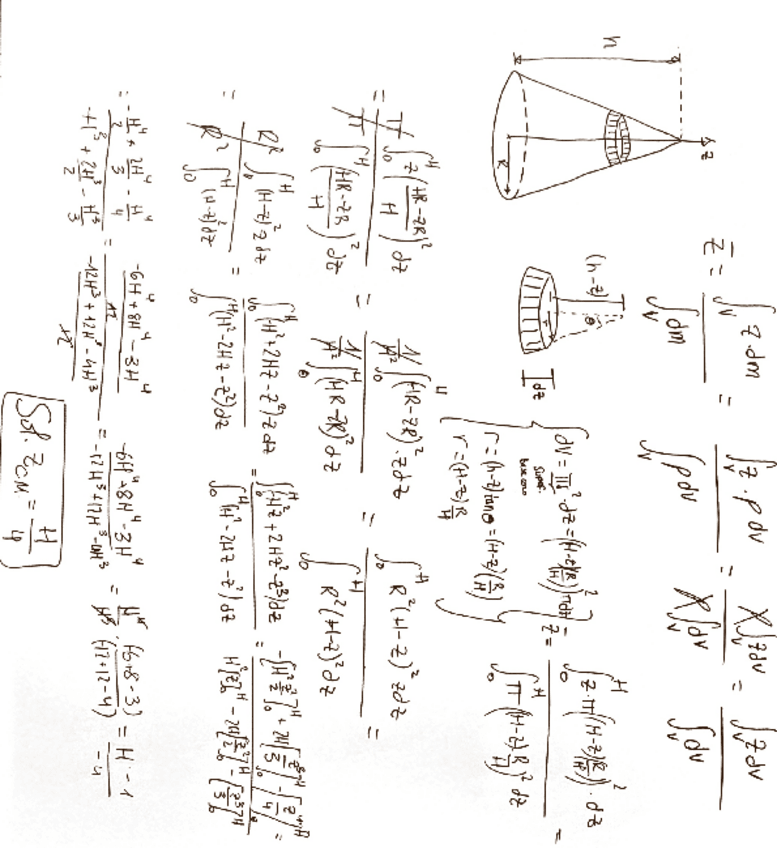 z̄ = ∫_v z·dm / ∫_v dm = ∫_v z·ρdv / ∫_v ρdv = ρ∫_v zdv / ρ∫_v dv = ∫_v zdv / ∫_v dv
z
h
R
(h-z)
θ
r
dz
dv = πr²·dz = (H-z)(R/H))² πdz
r = (h-z)tanθ = (H-z)(R/H)
r = (H-z)R/H
z̄ = ∫₀^H z·π((H-z)(R/H))²·dz / ∫₀^H π((H-z)R/H)² dz =
= π∫₀^H z((HR-zR)/H)² dz / π∫₀^H ((HR-zR)/H)² dz = 1/H² ∫₀^H (HR-zR)²·zdz / 1/H² ∫₀^H (HR-zR)² dz = ∫₀^H R²(H-z)² zdz / ∫₀^H R²(H-z)² dz =
= R² ∫₀^H (H-z)² z dz / R² ∫₀^H (H-z)² dz = ∫₀^H (H²+2Hz-z²)z dz / ∫₀^H (H²-2Hz-z²)dz = ∫₀^H (H²z+2Hz²-z³)dz / ∫₀^H (H²-2Hz-z²)dz = -[H² z²/2]₀^H + 2H[z³/3]₀^H - [z⁴/4]₀^H / H²[z]₀^H - 2H[z²/2]₀^H - [z³/3]₀^H =
= -H⁴/2 + 2H⁴/3 - H⁴/4 / -H³ + 2H³/2 - H³/3 = -6H⁴+8H⁴-3H⁴ / 12 / -12H³+12H³-4H³ / 12 = -6H⁴+8H⁴-3H⁴ / -12H³+12H³-4H³ = H⁴ (6+8-3) / H³ (12+12-4) = H·-1 / -4
Sol. z_CM = H/4